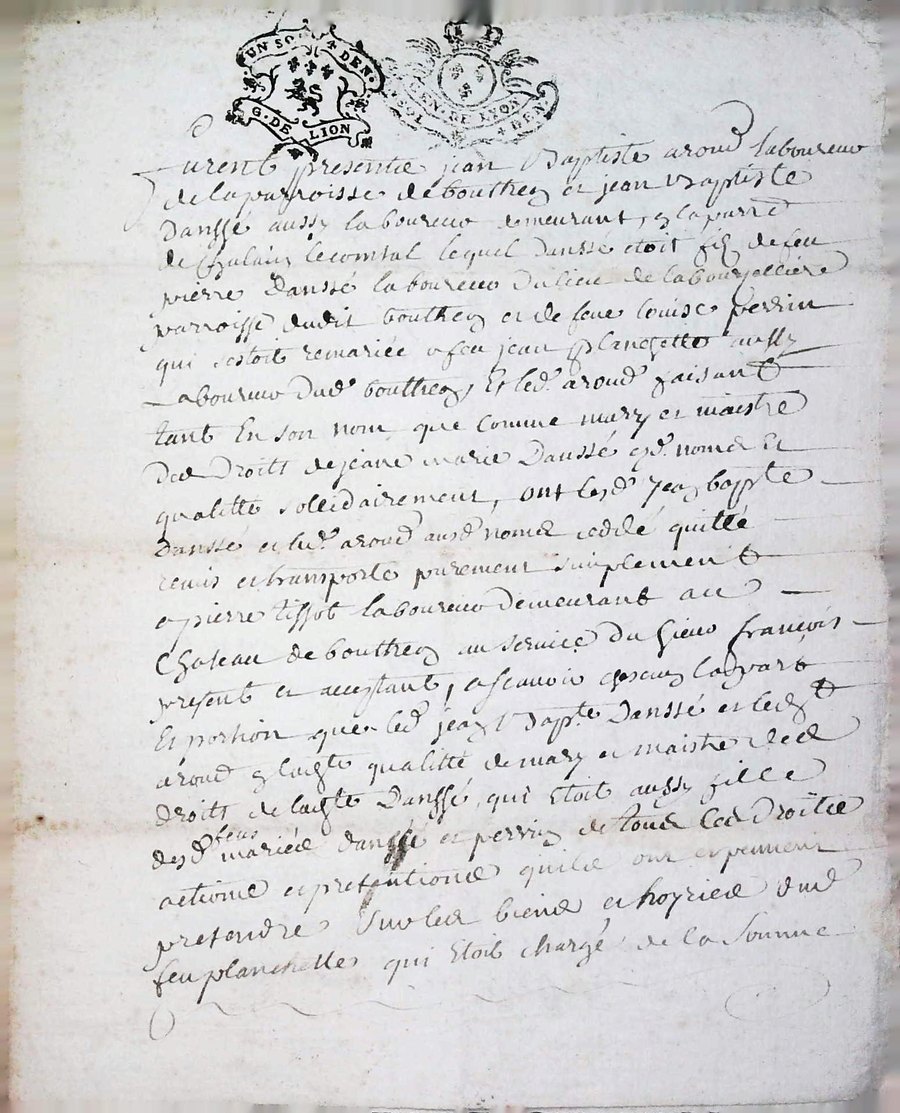 UN SO DEN.
G. DE LION
GEN. DE LYON
DEN
furent presente jean Baptiste aroud laboureur
de la parroisse de boutheon et jean Baptiste
Danssé aussy laboureur demeurant en la parre
de Chalain lecomtal lequel Danssé etoit fils de feu
pierre Danssé laboureur du lieu de la
parroisse dudit boutheon et de feue louise perrin
qui sestoit remariée a feu jean planchette aussy
Laboureur dud boutheon, Et led. aroud faisant
tant En son nom que Comme mary et maistre
Des Droits de jeane marie Danssé esd. noms Et
qualitté sollidairement, ont lesd. jean bapte
Danssé et led. aroud ausd. noms ceddé quitté
remis et transporté purement simplement
a pierre tissot laboureur demeurant au
Chateau de boutheon au service du sieur françois
present et acceptant, a scavoir la part
Et portion que led jean Bapte Danssé et led
aroud en lad qualitté de mary et maistre des
droits de lad Danssé, qui Etoit aussy fille
desd. feus mariés danssé et perrin de tous les Droits
actions et pretentions quils ont et peuvent
pretendre Sur les biens et hoyries dud
feu planchette qui Etoit chargé de la Somme